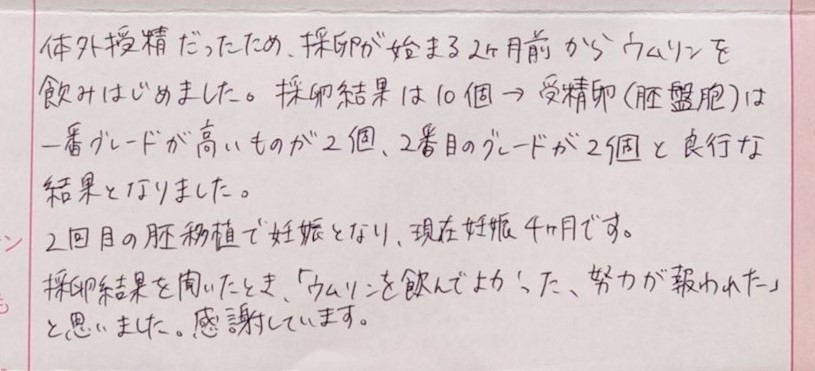 体外授精だったため、採卵が始まる2ヶ月前からウムリンを
飲みはじめました。採卵結果は10個→受精卵(胚盤胞)は
一番グレードが高いものが2個、2番目のグレードが2個と良行な
結果となりました。
2回目の胚移植で妊娠となり、現在妊娠4ヶ月です。
採卵結果を聞いたとき、「ウムリンを飲んでよかった、努力が報われた」
と思いました。感謝しています。
ン
も